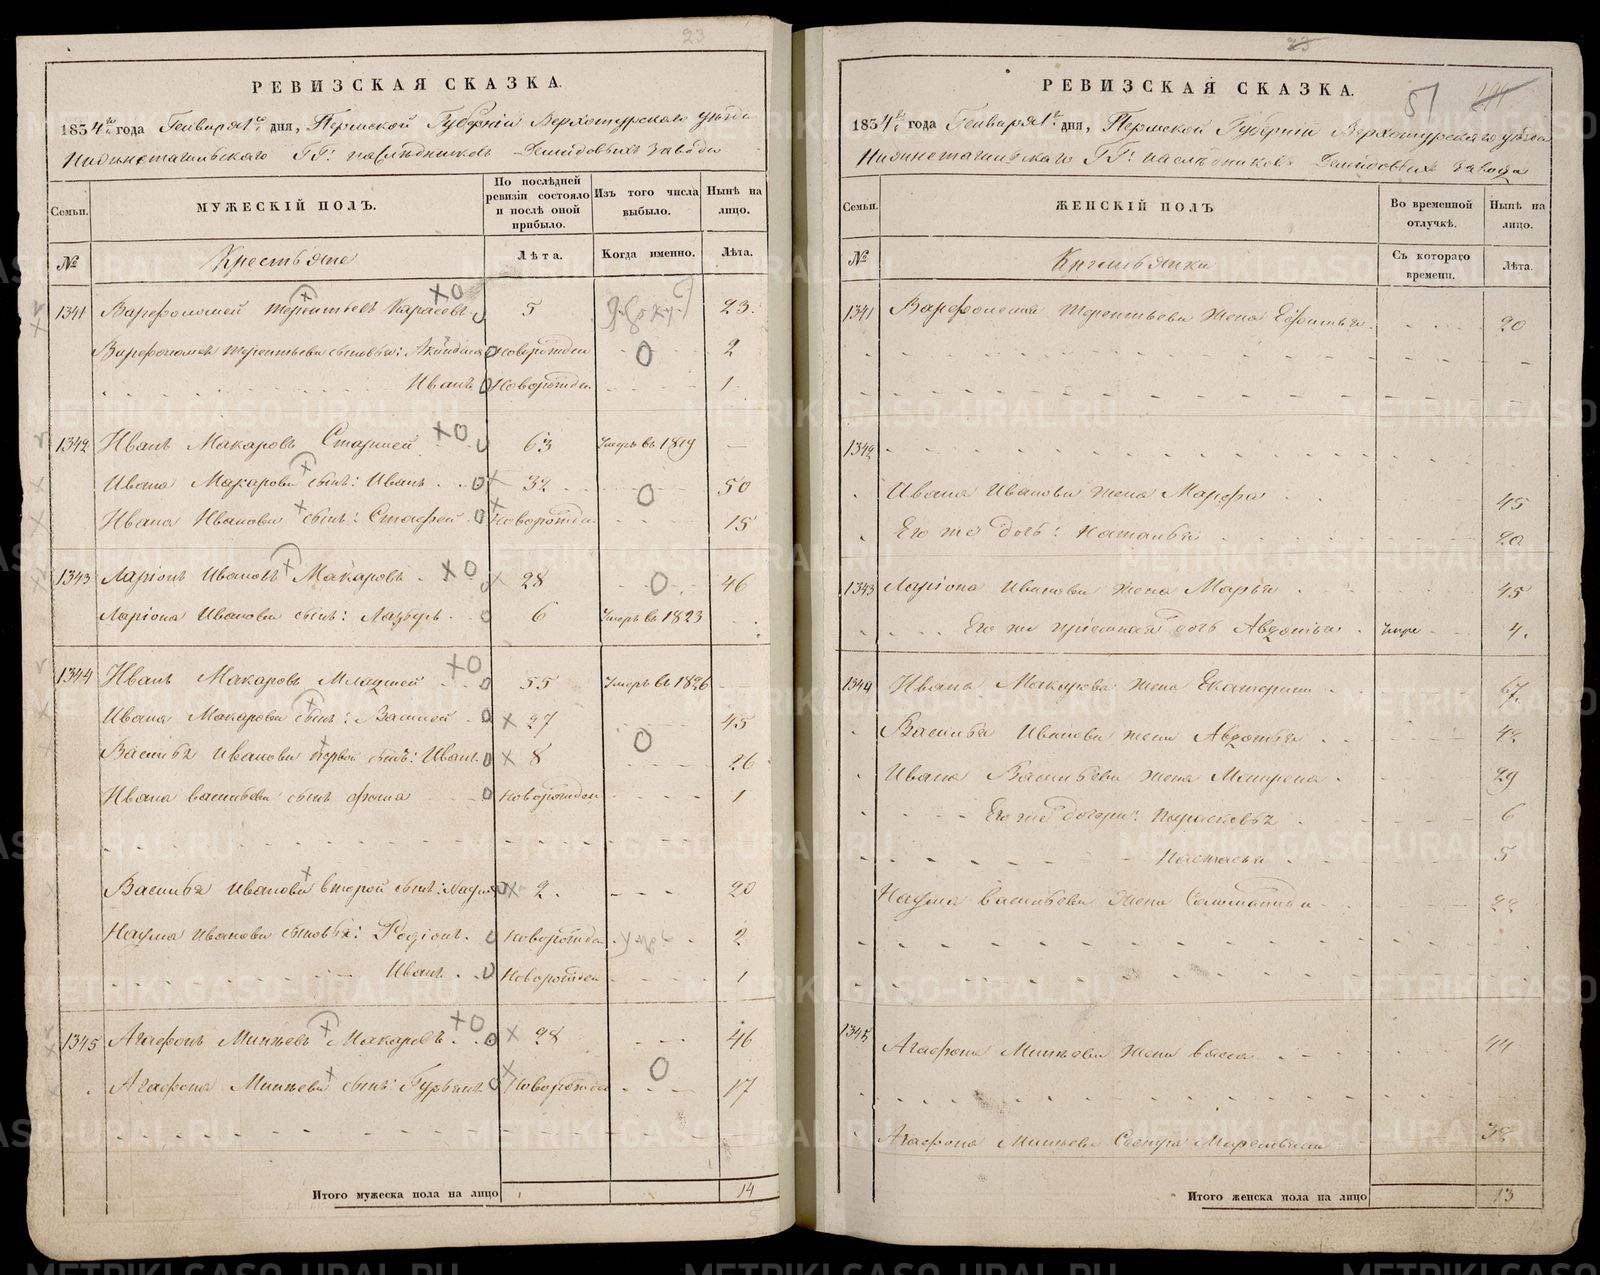 23
РЕВИЗСКАЯ СКАЗКА.
1834 года Генваря 1 дня, Пермской Губернии Верхотурского уезда
Нижнетагильского ГГ: наследниковъ Демидовыхъ завода
Семьи.
МУЖЕСКІЙ ПОЛЪ.
По послѣдней ревизіи состояло и послѣ оной прибыло.
Изъ того числа выбыло.
Нынѣ на лицо.
№
Крестьяне
Лѣта.
Когда именно.
Лѣта.
1341 Варфоломей Терентьевъ Карасевъ 5 23.
Варфоломея Терентьева сыновья: Акиндинъ новорожден 2
Иванъ новорожден. 1
1342 Иванъ Макаровъ Старшей 63 Умеръ въ 1819
Ивана Макарова сынъ: Иванъ 32 50
Ивана Иванова сынъ: Стафей новорожден 15
1343 Ларіонъ Ивановъ Макаровъ 28 46
Ларіона Иванова сынъ: Лазарь 6 Умеръ въ 1823
1344 Иванъ Макаровъ Младшей 55 Умеръ въ 1826
Ивана Макарова сынъ: Василей 27 45
Василья Иванова первой сынъ: Иванъ 8 26
Ивана васильева сынъ фома новорожден 1
Василья Иванова второй сынъ: Наумъ 2. 20
Наума Иванова сыновья: Родіонъ. новорожден 2
Иванъ новорожден 1
1345 Агафонъ Минѣевъ Макаровъ 28 46
Агафона Минѣева сынъ: Гурьянъ новорожден 17
Итого мужеска пола на лицо 14
23
51
РЕВИЗСКАЯ СКАЗКА.
1834 года Генваря 1 дня, Пермской Губернии Верхотурского уезда
Нижнетагильского ГГ: наследниковъ Демидовыхъ завода
Семьи.
ЖЕНСКІЙ ПОЛЪ
Во временной отлучкѣ.
Нынѣ на лицо.
№
Крестьянки
Съ котораго времени.
Лѣта.
1341 Варфоломея Терентьева жена Ефимья 20
1342
Ивана Иванова жена Марфа 45
Его же дочь: Наталья 20
1343 Ларіона Иванова жена Марья 45
Его же пріемная дочь Авдотья 4.
1344 Ивана Макарова жена Екатерина 67.
Василья Иванова жена Авдотья 42
Ивана Васильева жена Матрена 29
Его же дочери: Парасковья 6
Настасья 5
Наума васильева жена Соломонида 22
1345
Агафона Минѣева жена васса 44
Агафона Минѣева Сестра Маремьяна 32
Итого женска пола на лицо 13